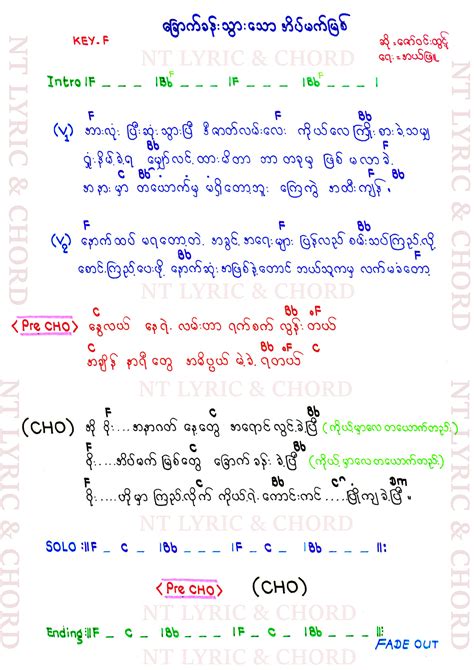 ခြောက်ခန်းသွားသော အိပ်မက်မြစ်
KEY-F
NT LYRIC & CHORD
ဆို - ဇော်ဝင်းထွဋ်
ရေး -
F Bb F F Bb F
Intro |F _ _ _ |Bb _ _ _ |F _ _ _ |Bb _ _ _ |
F F Bb
(V1) အားလုံး ပြီးဆုံးသွားပြီ ဒီဇာတ်လမ်းလေး ကိုယ်လေ ကြိုးစားခဲ့သမျှ
Bb F
ရှုံးနိမ့်ခဲ့ရ မျှော်လင့်ထားမိတာ ဘာ တခုမှ ဖြစ် မလာခဲ့
C Bb C Bb F
အနားမှာ တယောက်မှ မရှိတော့ဘူး ကြေကွဲ အထီးကျန်
F F Bb
(V2) နောက်ထပ် မရတော့တဲ့ အခွင့်အရေးများ ပြန်လည် စမ်းသပ်ကြည့်လို့
စောင့်ကြည့်ပေးဖို့ နောက်ဆုံးအဖြစ်နဲ့တောင် ဘယ်သူကမှ လက်မခံတော့
NT LYRIC & CHORD
C Bb F
<Pre CHO> နွေလယ် နေရဲ့ လမ်းဟာ ရက်စက် လွန်းတယ်
C Bb F C
အချိန် နာရီတွေ အဓိပ္ပါယ် မဲ့ခဲ့ရတယ်
NT LYRIC & CHORD
F C Bb
(CHO) အို ဝိုး.... အနာဂတ် နေ့တွေ အရောင် လွင့်ခဲ့ပြီ (ကိုယ့်မှာလေ တယောက်တည်း)
F C Bb
ဝိုး.....အိပ်မက် မြစ်တွေ ခြောက် ခန်းခဲ့ပြီ (ကိုယ့်မှာလေ တယောက်တည်း)
F C Bb
ဝိုး....ဟိုမှာ ကြည့်လိုက် ကိုယ့်ရဲ့ ကောင်းကင် ....ပြိုကျခဲ့ပြီ
NT LYRIC & CHORD
SOLO :||F _ C _ |Bb _ _ _ |F _ C _ |Bb _ _ _ ||:
<Pre CHO> (CHO)
NT LYRIC & CHORD
Ending:||F _ C _ |Bb _ _ _ |F _ C _ |Bb _ _ _ ||:
FADE OUT
NT LYRIC & CHORD